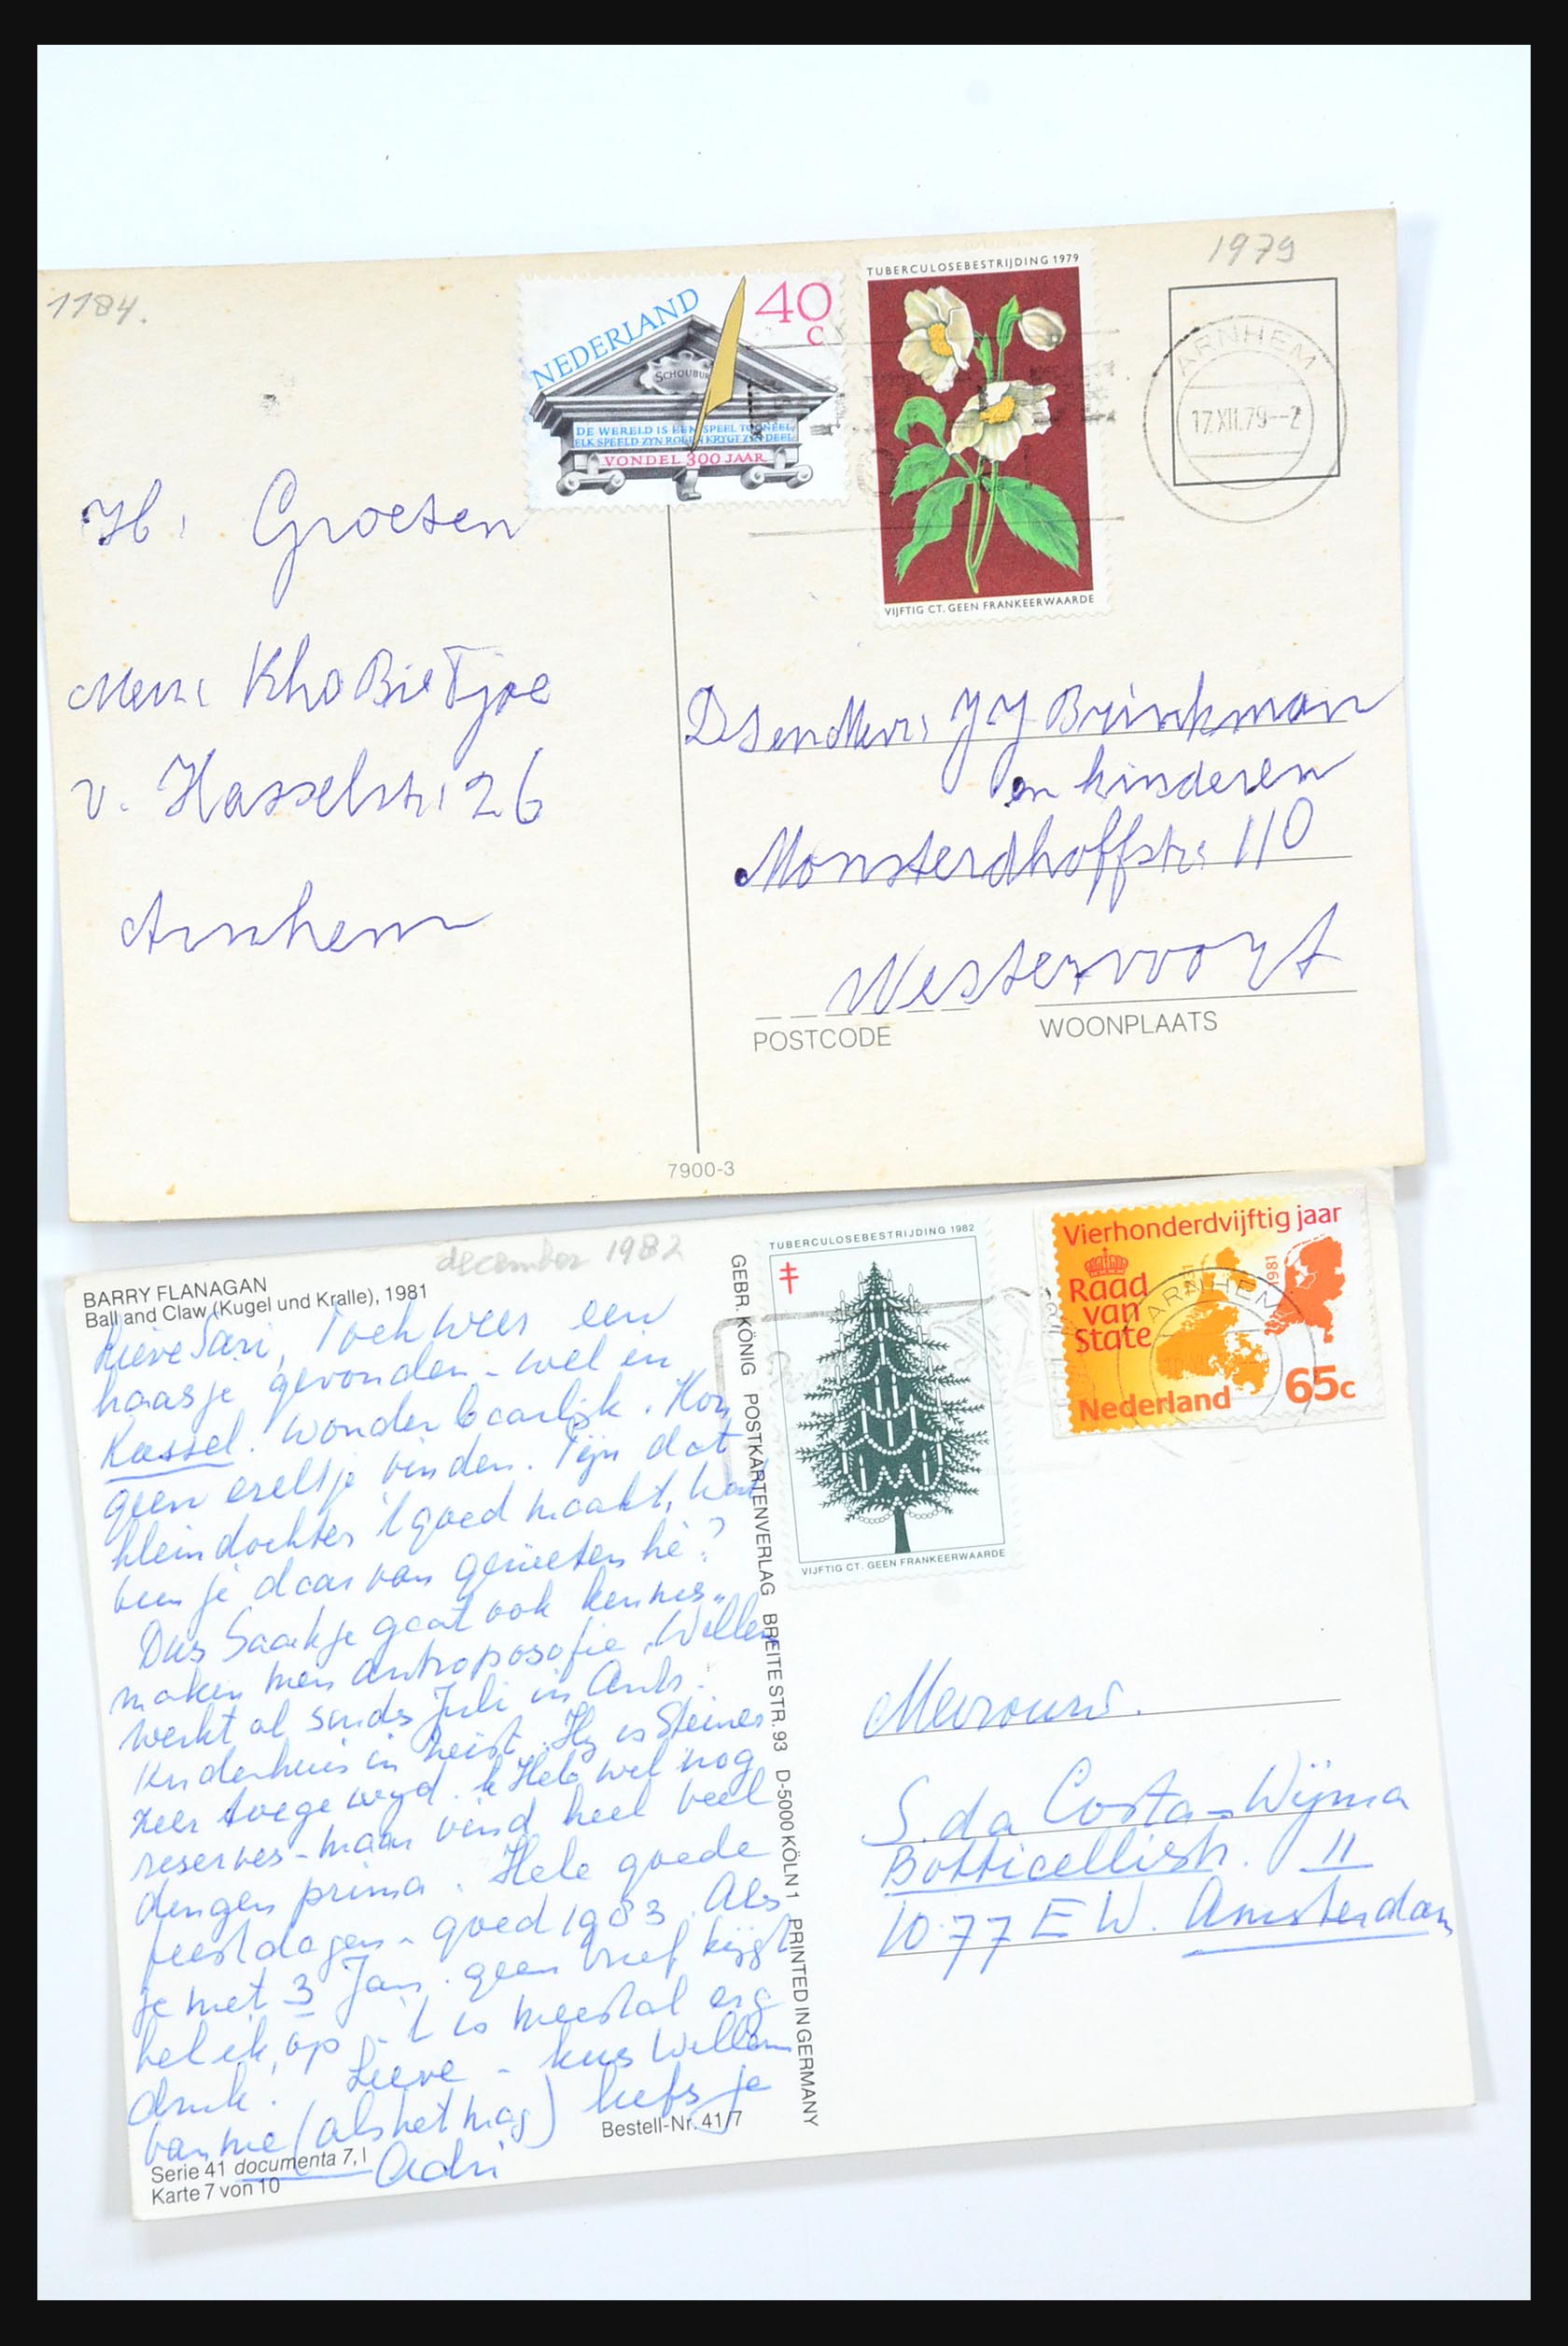 1184.
1979
NEDERLAND
40
c
SCHOUBURG
DE WERELD IS EEN SPEEL TOONEEL,
ELK SPEELD ZYN ROL EN KRYGT ZYN DEEL
VONDEL 300 JAAR
TUBERCULOSEBESTRIJDING 1979
VIJFTIG CT. GEEN FRANKEERWAARDE
ARNHEM
17.XII.79--2
H. Groeten
Kho Bie Tjoe
v. Hasselstr. 26
Arnhem
JJ Brinkman
en kinderen
Monsterdhoffstr. 110
Westervoort
POSTCODE WOONPLAATS
7900-3
december 1982
BARRY FLANAGAN
Ball and Claw (Kugel und Kralle), 1981
Lieve Sari, Toch weer een
haasje gevonden - wel in
Kassel. Wonderbaarlijk. Kon
geen ezeltje vinden. Fijn dat
kleindochter 't goed maakt, wat
kun je daar van genieten hè?
Dus Saakje gaat ook kennis-
maken met antroposofie. Willem
werkt al sinds Juli in
in Zeist. Hij is Steiner
zeer toegewijd. Ik Heb wel nog
reserves - maar vind heel veel
dingen prima. Hele goede
feestdagen - goed 1983. Als
je met 3 Jan. geen brief krijgt
bel ik op - 't is meestal erg
druk. Lieve - kus Willem
van me (als het mag) liefs je
Adri
Serie 41 documenta 7, I
Karte 7 von 10
Bestell-Nr. 41/7
GEBR. KÖNIG POSTKARTENVERLAG BREITE STR. 93 D-5000 KÖLN 1 PRINTED IN GERMANY
TUBERCULOSEBESTRIJDING 1982
VIJFTIG CT. GEEN FRANKEERWAARDE
Vierhonderdvijftig jaar
Raad
van
State
1981
Nederland
65c
ARNHEM
Mevrouw.
S. da Costa-Wijma
Botticellistr. 11
1077 EW. Amsterdam